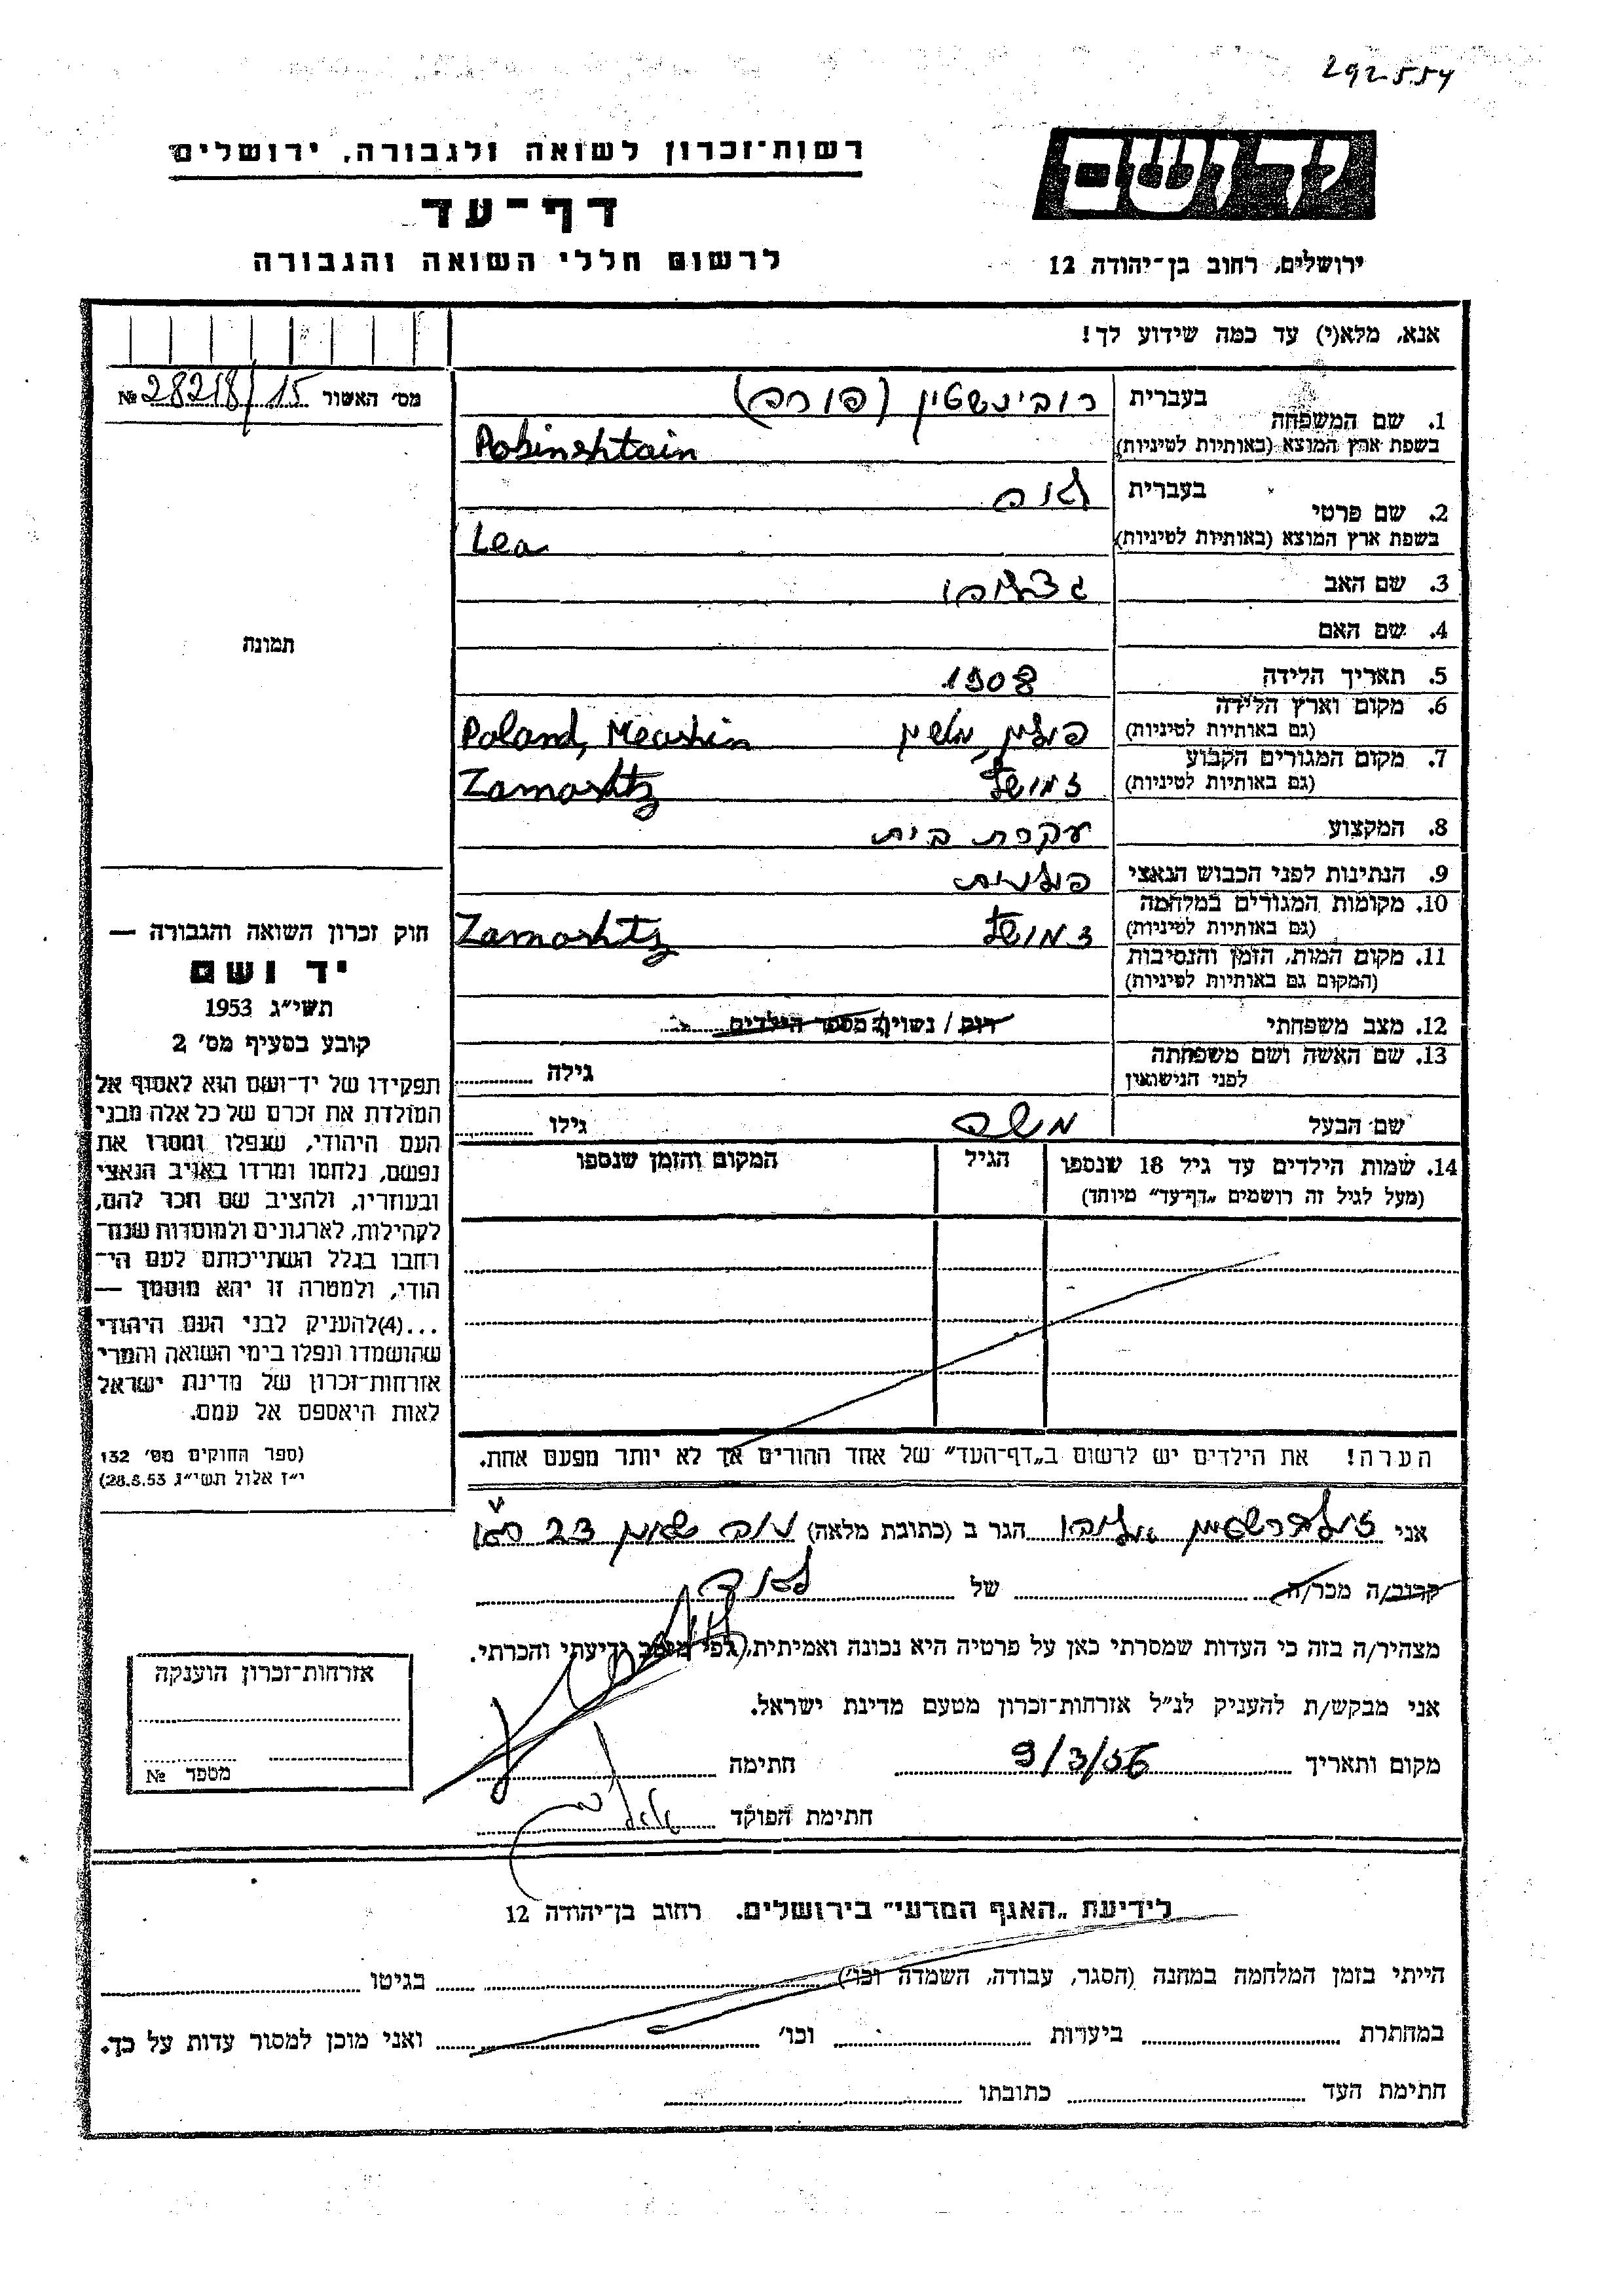 292554
יד ושם
רשות־זכרון לשואה ולגבורה, ירושלים
דף־עד
לרשום חללי השואה והגבורה
ירושלים, רחוב בן־יהודה 12
אנא, מלא(י) עד כמה שידוע לך!
מס׳ האשור 28218/15 №
1. שם המשפחה
בעברית רובינשטיין (פורה)
בשפת ארץ המוצא (באותיות לטיניות) Robinshtain
2. שם פרטי
בעברית לאה
בשפת ארץ המוצא (באותיות לטיניות) Lea
3. שם האב
4. שם האם
5. תאריך הלידה 1908
6. מקום וארץ הלידה
(גם באותיות לטיניות) פולין, Poland, Meashin
7. מקום המגורים הקבוע
(גם באותיות לטיניות) זמושץ Zamoshtz
8. המקצוע עקרת בית
9. הנתינות לפני הכבוש הנאצי פולנית
10. מקומות המגורים במלחמה
(גם באותיות לטיניות) זמושץ Zamoshtz
11. מקום המות, הזמן והנסיבות
(המקום גם באותיות לטיניות)
12. מצב משפחתי רוק / נשוי/ מספר הילדים
13. שם האשה ושם משפחתה
לפני הנישואין גילה
שם הבעל משה גילו
14. שמות הילדים עד גיל 18 שנספו
(מעל לגיל זה רושמים „דף־עד״ מיוחד)
הגיל
המקום והזמן שנספו
הערה! את הילדים יש לרשום ב„דף־העד״ של אחד ההורים אך לא יותר מפעם אחת.
תמונה
חוק זכרון השואה והגבורה —
יד ושם
תשי״ג 1953
קובע בסעיף מס׳ 2
תפקידו של יד־ושם הוא לאסוף אל
המולדת את זכרם של כל אלה מבני
העם היהודי, שנפלו ומסרו את
נפשם, נלחמו ומרדו באויב הנאצי
ובעוזריו, ולהציב שם וזכר להם,
לקהילות, לארגונים ולמוסדות שנח־
רבו בגלל השתייכותם לעם הי־
הודי, ולמטרה זו יהא מוסמך —
...(4)להעניק לבני העם היהודי
שהושמדו ונפלו בימי השואה והמרי
אזרחות־זכרון של מדינת ישראל
לאות היאספם אל עמם.
(ספר החוקים מס׳ 132
י״ז אלול תשי״ג 28.8.53)
אני הגר ב (כתובת מלאה) 23
קרוב/ה מכר/ה של
מצהיר/ה בזה כי העדות שמסרתי כאן על פרטיה היא נכונה ואמיתית, לפי מיטב ידיעתי והכרתי.
אני מבקש/ת להעניק לנ״ל אזרחות־זכרון מטעם מדינת ישראל.
מקום ותאריך 9/3/56 חתימה
חתימת הפוקד
אזרחות־זכרון הוענקה
מספר №
לידיעת „האגף המדעי״ בירושלים. רחוב בן־יהודה 12
הייתי בזמן המלחמה במחנה (הסגר, עבודה, השמדה וכו׳) בגיטו
במחתרת ביערות וכו׳ ואני מוכן למסור עדות על כך.
חתימת העד כתובתו